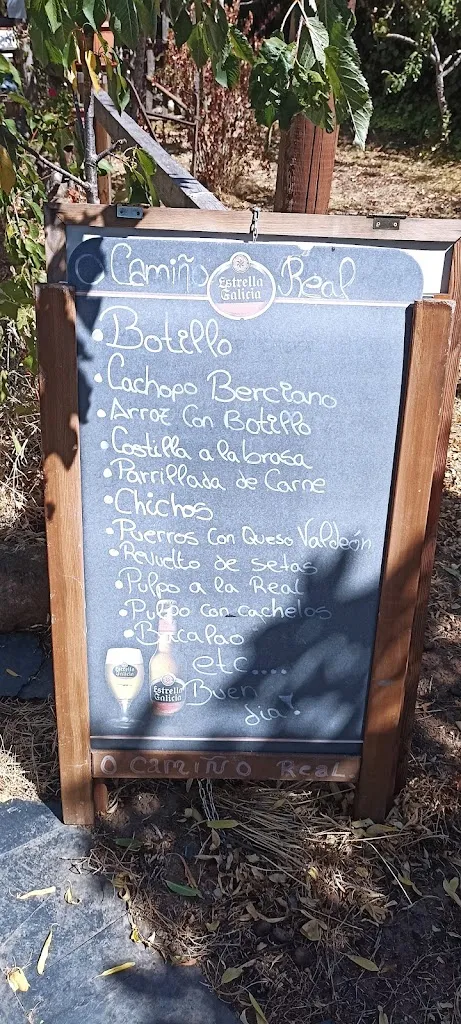 O Camiño Real
Estrella
Galicia
• Botillo
• Cachopo Berciano
• Arroz Con Botillo
• Costilla a la brosa
• Parrillada de Carne
• Chichos
• Puerros Con Queso Valdeón
• Revuelto de setas
• Pulpo a la Real
• Pulpo Con cachelos
• Bacalao
etc....
Estrella
Galicia
Estrella
Galicia
Buen
día!
O CAMIÑO REAL